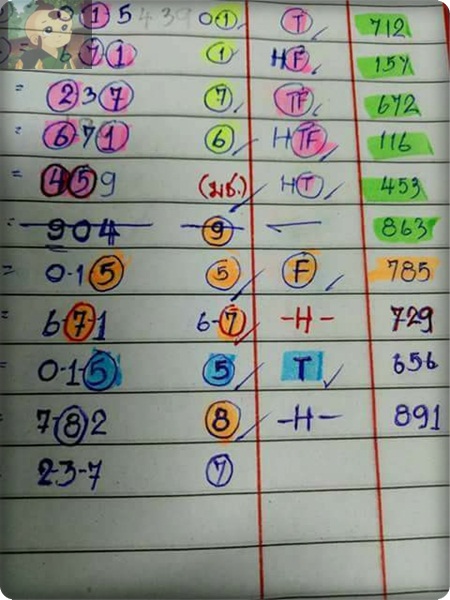 0 1 5 439 0-1 T 712
6 7 1 1 HF 157
= 2 3 7 7 TF 672
= 6 7 1 6 HTF 116
= 4 5 9 (มช.) HT 453
= 9 0 4 9 863
= 0-1 5 5 F 785
= 6-7-1 6-7 -H- 729
= 0-1-5 5 T 656
7 8 2 8 -H- 891
2-3-7 7